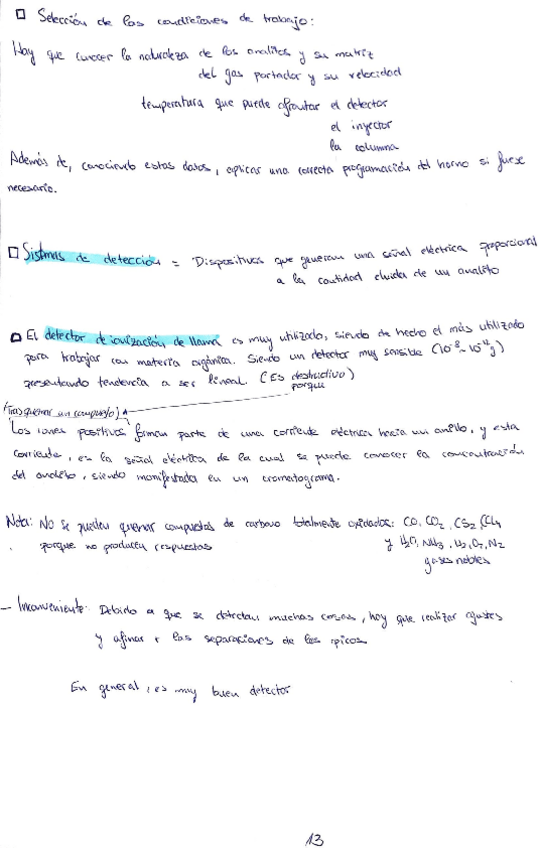 □ Selección de las condiciones de trabajo:
Hay que conocer la naturaleza de los analitos y su matriz
del gas portador y su velocidad
temperatura que puede afrontar el detector
el inyector
la columna
Además de, conociendo estos datos, aplicar una correcta programación del horno si fuese
necesario.
□ Sistemas de detección = Dispositivos que generan una señal eléctrica proporcional
a la cantidad eluida de un analito
□ El detector de ionización de llama es muy utilizado, siendo de hecho el más utilizado
para trabajar con materia orgánica. Siendo un detector muy sensible (10⁻⁸ - 10⁻¹⁴ g)
presentando tendencia a ser lineal. (Es destructivo)
porque
(Tras quemar un compuesto)
Los iones positivos forman parte de una corriente eléctrica hacia un anillo, y esta
corriente, es la señal eléctrica de la cual se puede conocer la concentración
del analito, siendo manifestada en un cromatograma.
Nota: No se pueden quemar compuestos de carbono totalmente oxidados: CO, CO₂, CS₂, CCl₄
porque no producen respuestas y H₂O, NH₃, H₂, O₂, N₂
gases nobles
- Inconveniente: Debido a que se detectan muchas cosas, hay que realizar ajustes
y afinar las separaciones de los picos
En general, es muy buen detector
13